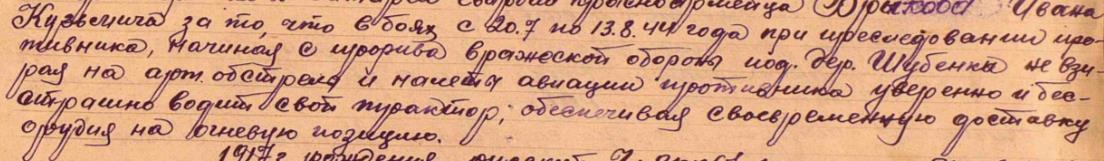 батареи ефрейтора красноармейца Ивана
Кузьмича за то, что в боях с 20.7 по 13.8.44 года при преследовании про-
тивника, начиная с прорыва вражеской обороны под. дер. Шубенка не взи-
рая на арт. обстрела и налеты авиации противника уверенно и бес-
страшно водит свой трактор, обеспечивая своевременную доставку
орудия на огневую позицию.
1917 г рождения